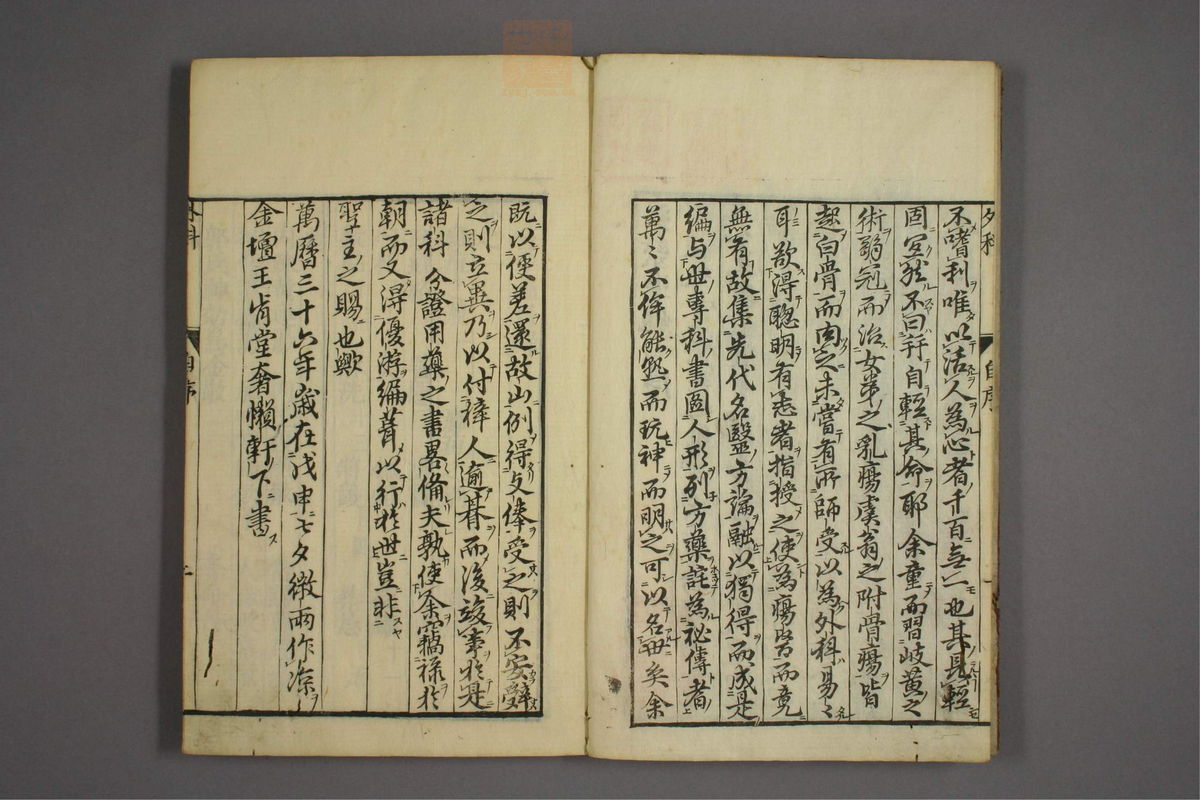 外科
自序
不嗜利唯以活人為心者千百無一也其見輕
固宜然不曰并自輕其命耶余童而習岐黃之
術弱冠而治女弟之乳瘍虞翁之附骨瘍皆
起白骨而肉之未嘗有所師受以為外科易々
耳欲得聰明有志者指授之使為瘍醫而竟
無有故集先代名醫方論融以獨得而成是
編与世專科書圖人形列方藥詫為祕傳者
萬〻不侔能熟而玩神而明之可以名世矣余
既以便差還故山例得支俸受之則不安辭
之則立異乃以付梓人逾朞而後竣事於是
諸科分證用藥之書畧備夫孰使余竊祿於
朝而又得優游編葺以行於世豈非
聖主之賜也歟
萬曆三十六年歲在戊申七夕微雨作涼
金壇王肯堂奢懶軒下書
外科
自序